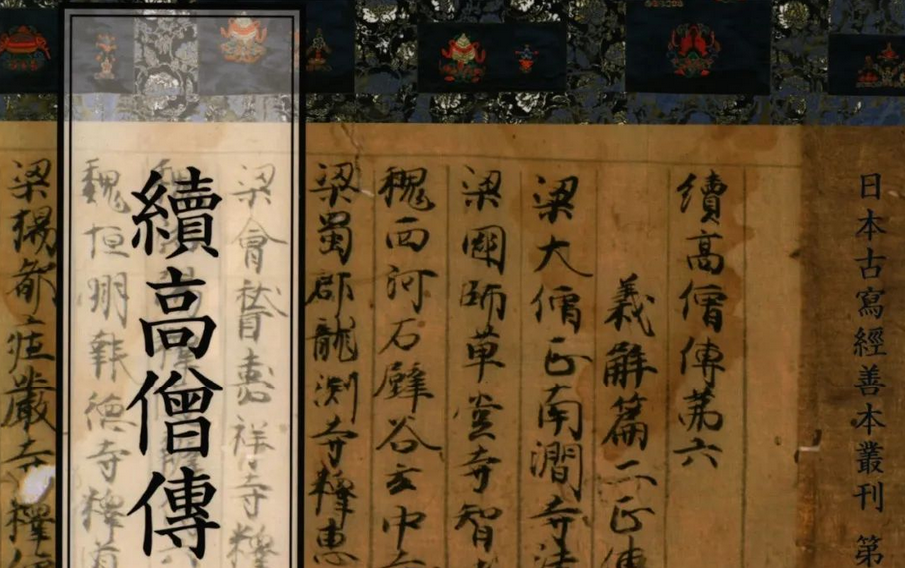 日本古寫經善本叢刊 第
續高僧傳苐六
義解篇二正傳
梁大僧正南澗寺法
梁國師草堂寺智
魏西河石壁谷玄中
梁蜀郡龍渊寺釋惠
梁會稽嘉祥寺釋
續高僧傳
魏恒州報德寺釋道
梁楊都莊嚴寺釋僧